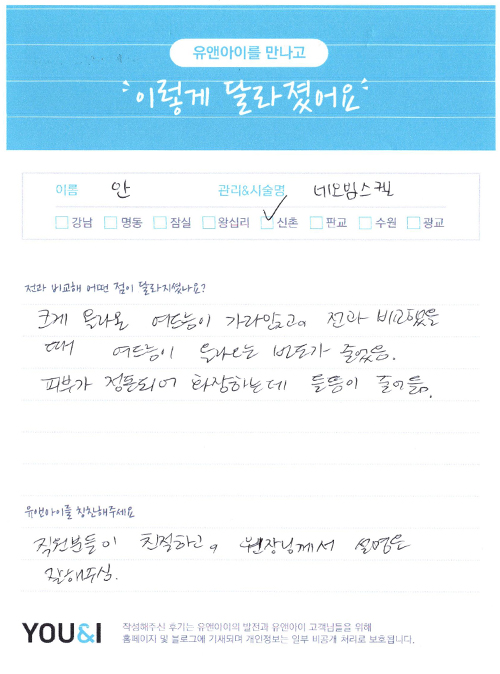 유앤아이를 만나고
이렇게 달라졌어요
이름 안 관리&시술명 네오빔스킨
강남 명동 잠실 왕십리 신촌 판교 수원 광교
전과 비교해 어떤 점이 달라지셨나요?
크게 올라올 여드름이 가라앉고, 전과 비교했을
때 여드름이 올라오는 빈도가 줄었음.
피부가 정돈되어 화장하는데 들뜸이 줄어듦.
유앤아이를 칭찬해주세요
직원분들이 친절하고, 원장님께서 설명을
잘해주심.
YOU&I
작성해주신 후기는 유앤아이의 발전과 유앤아이 고객님들을 위해
홈페이지 및 블로그에 기재되며 개인정보는 일부 비공개 처리로 보호됩니다.